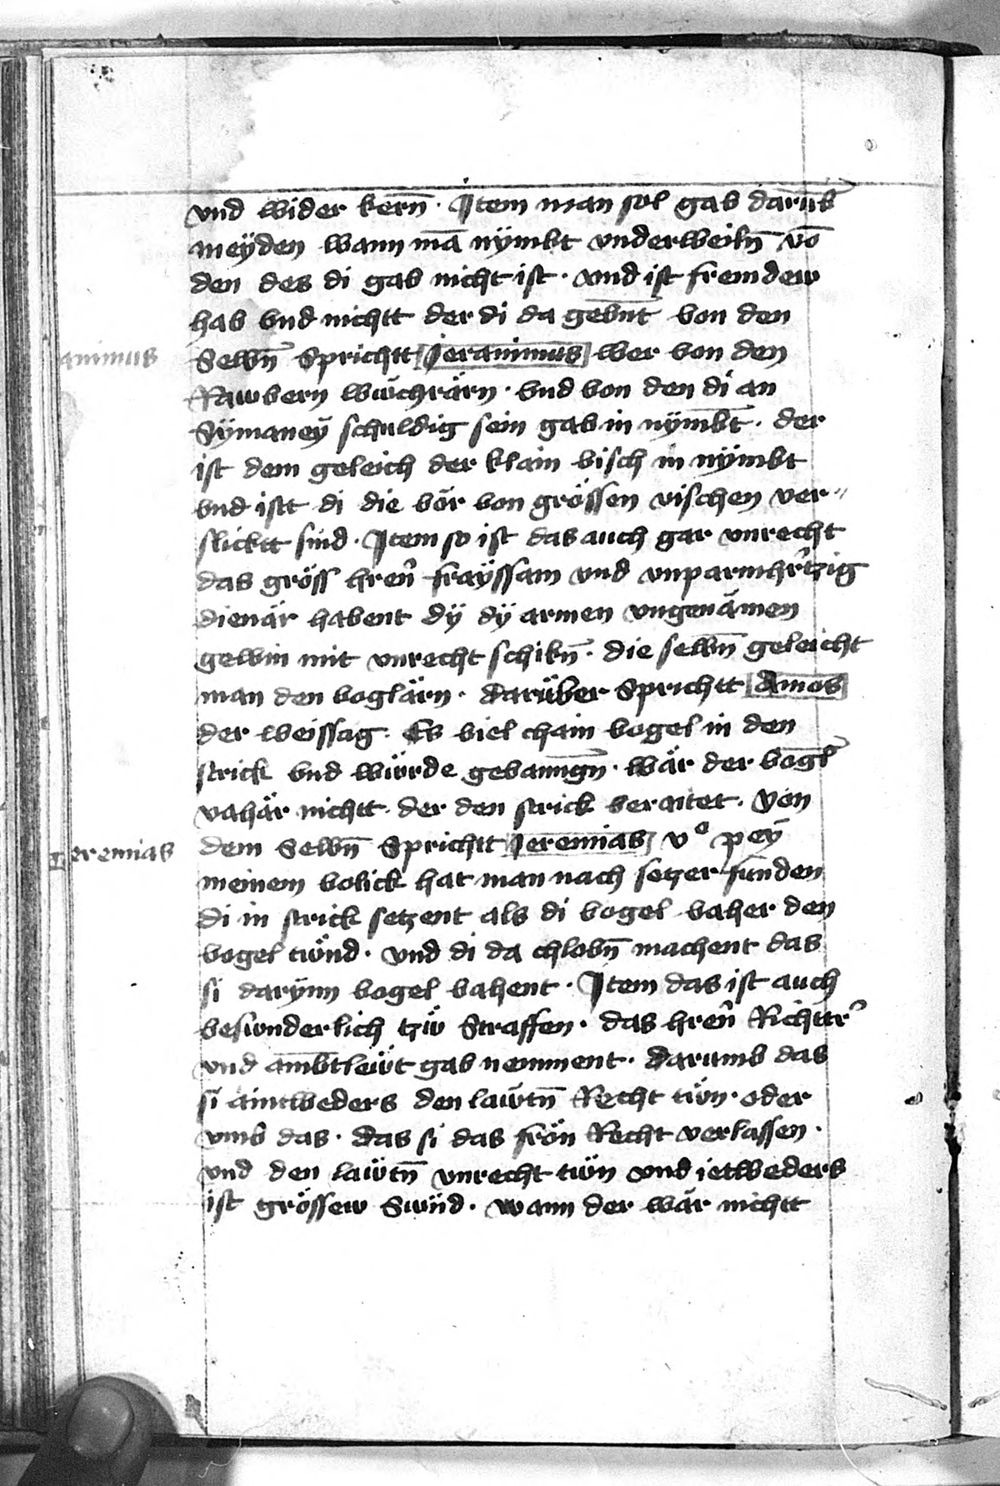 vnd wider kern̄ · Jtem man sol gab darūb
meÿden wann mā nÿmbt vnderweiln̄ vō
den des di gab nicht ist · vnd ist fremdew
hab vnd nichtt der di da gebn̄t von den
animus
Selbn̄ Sprichtt Jeranimus wer von den
Rawbern wüchrärn · vnd von den di an
Sÿmaneÿ schuldig sein gab in nymbt · der
ist dem geleich der klain visch in nÿmbt
vnd isst di die vör von grössen vischen ver〃
slicktt sind · Jtem so ist das auch gar vnrecht
das gröss hren̄ fraÿssam vnd vnparmhr̄tzig
dienär habent dÿ dÿ armen vngenämen
gewin mit vnrecht schikn̄ · die selbn̄ geleicht
man den voglärn · darüber Sprichtt Amos
der weissag · Es viel chain vogel in den
strick vnd würde gevanngn̄ · wär der vogl̄
vahär nichtt · der den strick beraitet · Von
Jeremias
dem Selbn̄ Sprichtt Jeremias vº peÿ
meinem volick hat man nach setzer funden
di in strick setzent als di vogel vaher den
vogel tuönd · vnd di da chlobn̄ machent das
si darÿnn vogel vahent · Jtem das ist auch
besunderlich tzw̆ Straffen · das hren̄ Richttr̄
vnd ambtleẅt gab nemment · darumb das
si aintweders den laẅtn̄ Recht tuön · oder
vmb das · das si das frön Recht verlassen ·
vnd den laẅtn̄ vnrecht tuön vnd ietweders
ist grössew Sünd · wann der wär nichtt